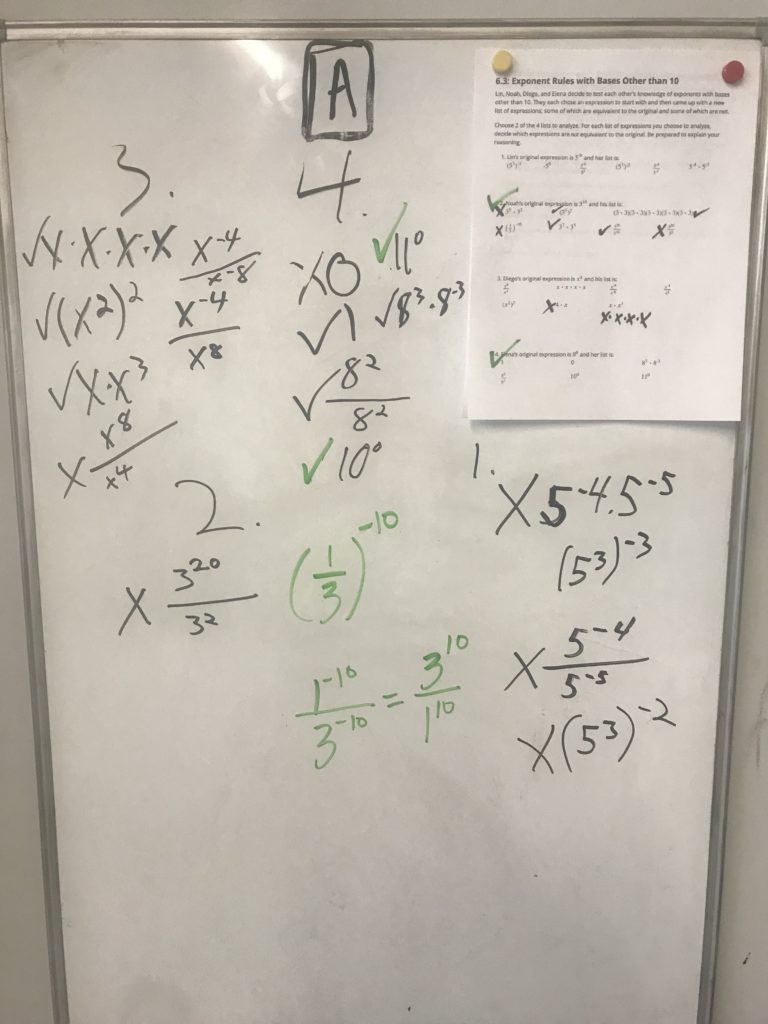 A
6.3: Exponent Rules with Bases Other than 10
Lin, Noah, Diego, and Elena decide to test each other's knowledge of exponents with bases
other than 10. They each chose an expression to start with and then came up with a new
list of expressions; some of which are equivalent to the original and some of which are not.
Choose 2 of the 4 lists to analyze. For each list of expressions you choose to analyze,
decide which expressions are not equivalent to the original. Be prepared to explain your
reasoning.
1. Lin's original expression is 5⁻⁹ and her list is:
Noah's original expression is 3¹⁰ and his list is:
3. Diego's original expression is x⁴ and his list is:
x·x·x·x
Elena's original expression is 8⁰ and her list is:
1 0 8³ · 8⁻³
10⁰ 11⁰
3.
√x·x·x·x x⁻⁴/x⁻⁸
√(x²)² x⁻⁴/x⁸
√x·x³
x x⁸/x⁴
4.
x0 ✓11⁰
√1 √8³·8⁻³
✓8²/8²
✓10⁰
2.
x 3²⁰/3² (1/3)⁻¹⁰
1⁻¹⁰/3⁻¹⁰ = 3¹⁰/1¹⁰
1.
x 5⁻⁴·5⁻⁵
(5³)⁻³
x 5⁻⁴/5⁻⁵
x(5³)⁻²